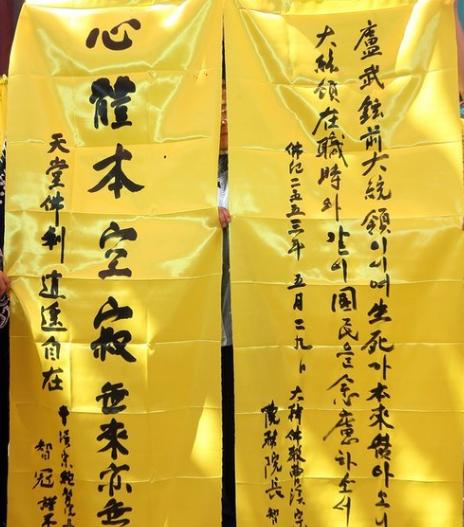 盧武鉉前大統領이시여生死가本來없아오
大統領在職時와 같이 國民을 念慮하소서
佛紀二五五三年 五月 二九日
大韓佛敎曹溪宗
總務院長 智
心體本空寂 無來亦無
天堂佛刹 逍遙自在
曹溪宗總務院長
智冠